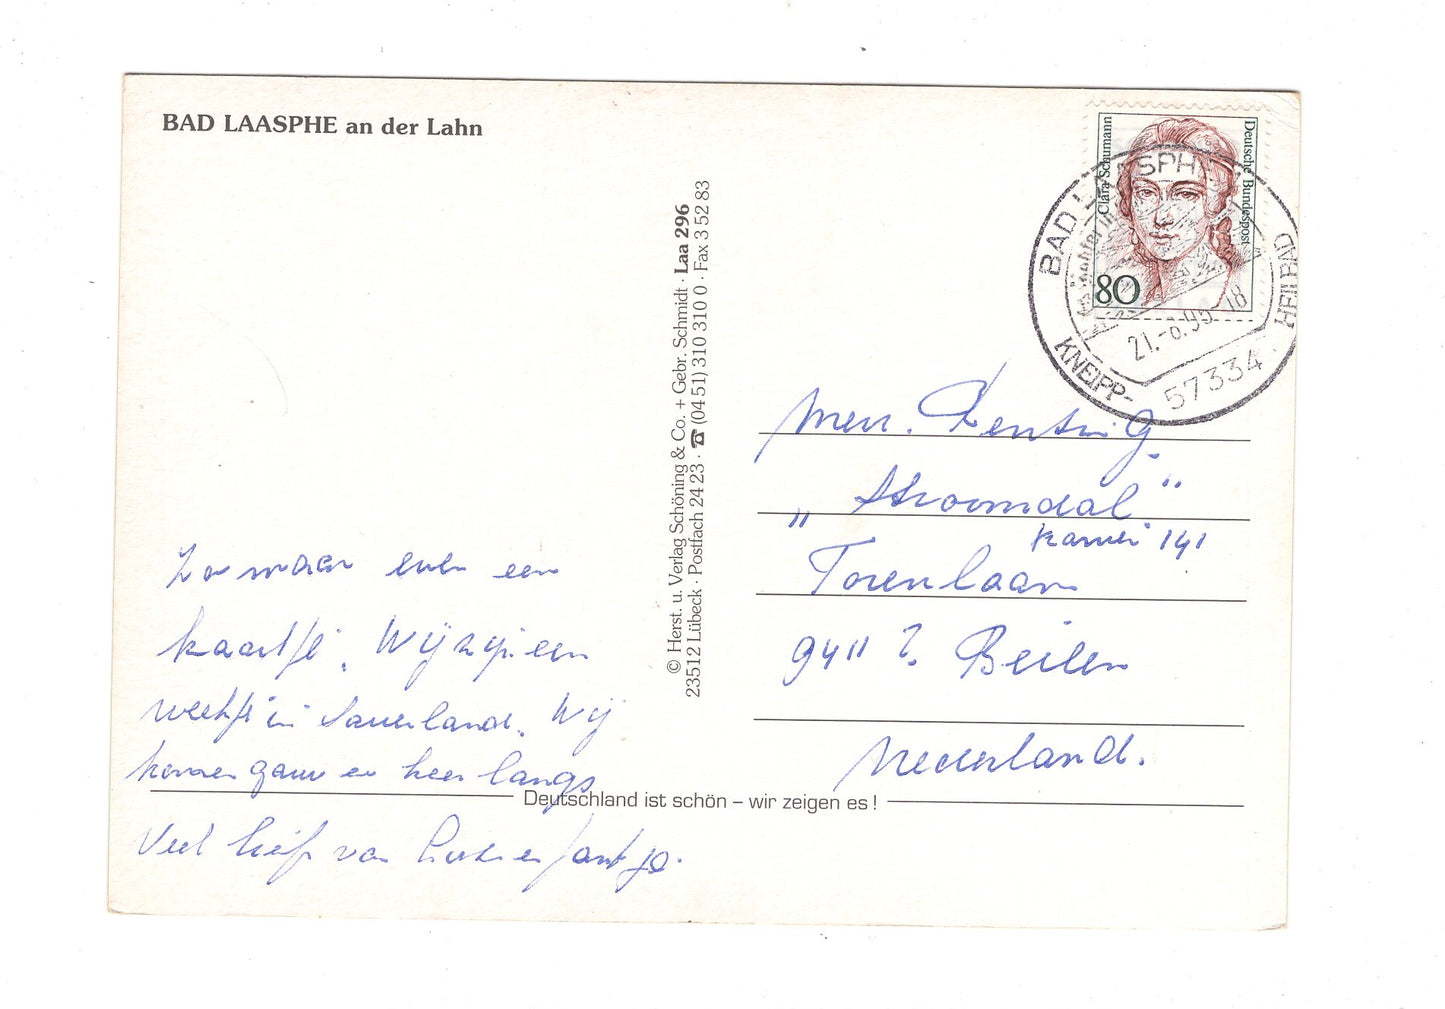 BAD LAASPHE an der Lahn
Clara Schumann
Deutsche Bundespost
80
BAD LAASPHE
21.-8.95-18
KNEIPP-
HEILBAD
57334
© Herst. u. Verlag Schöning & Co. + Gebr. Schmidt · Laa 296
23512 Lübeck · Postfach 24 23 · ☎ (04 51) 310 310 0 · Fax 3 52 83
Zo maar even een
kaartje. Wij zijn een
weekje in Sauerland. Wij
komen gauw er heen langs
Veel liefs van en Jantje.
Mevr.
"Stroomdal"
kamer 141
Torenlaan
9411 Beilen
Nederland.
Deutschland ist schön – wir zeigen es!